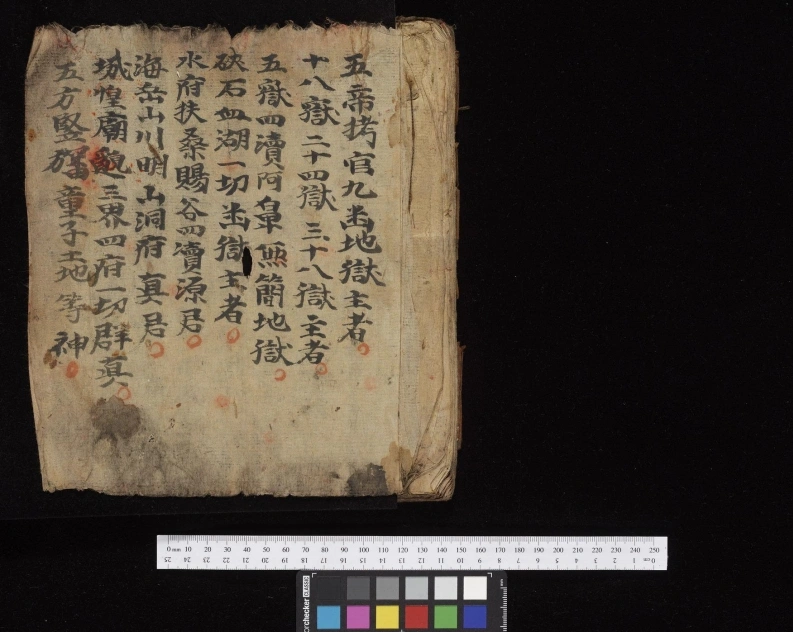 五帝拷官九幽地獄主者
十八獄二十四獄三十八獄主者
五嶽四瀆阿鼻無簡地獄
硤石血湖一切幽獄主者
水府扶桑賜谷四瀆源君
海岳山川明山洞府真君
城惶廟貌三界四府一切群真
五方堅牢童子土地等神
0 mm 10 20 30 40 50 60 70 80 90 100 110 120 130 140 150 160 170 180 190 200 210 220 230 240 250
25 24 23 22 21 20 19 18 17 16 15 14 13 12 11 10 9 8 7 6 5 4 3 2 1 0 cm
orchecker CLASSIC